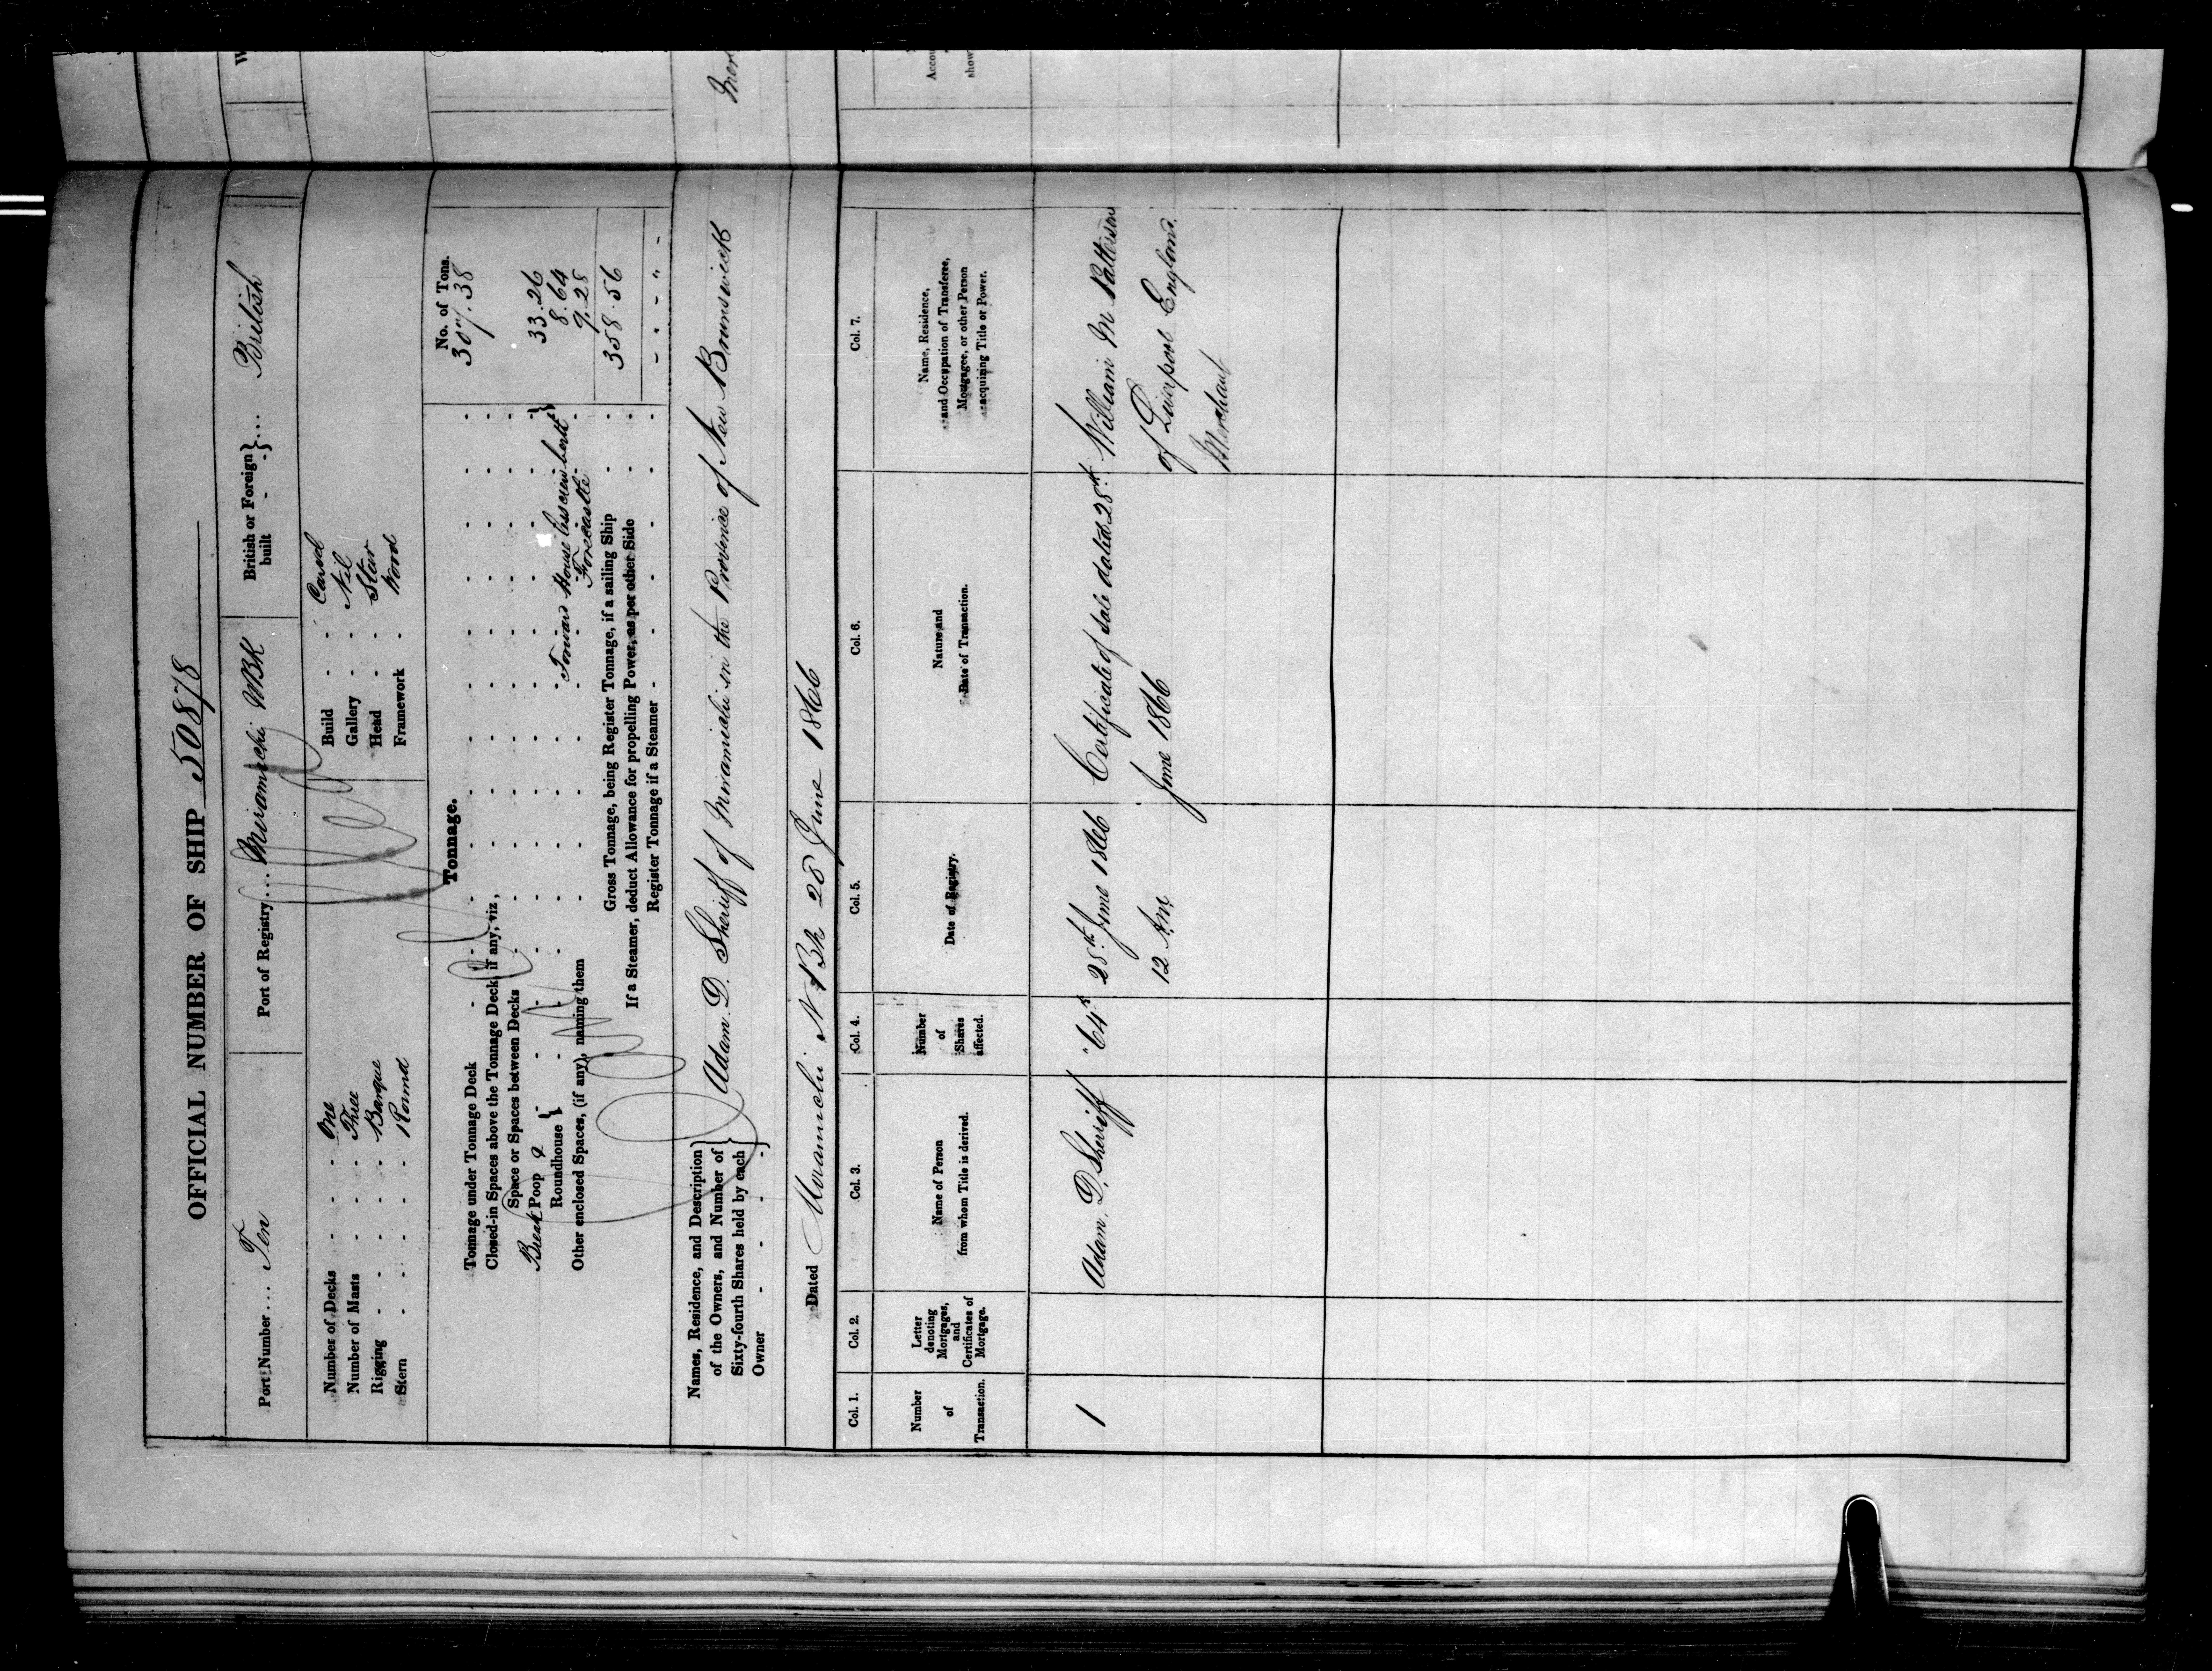 OFFICIAL NUMBER OF SHIP 50878
Port Number ... Ten Port of Registry ... Miramichi NBk British or Foreign built - - } ... British
Number of Decks - - - One Build - - Carvel
Number of Masts - - - Three Gallery - - Nil
Rigging - - - - Barque Head - -
Stern - - - - Round Framework -
Tonnage.
No. of Tons.
Tonnage under Tonnage Deck 307.38
Closed-in Spaces above the Tonnage Deck, if any, viz.,
Space or Spaces between Decks
Break Poop & 33.26
Roundhouse Forward House less crew 8.64
Other enclosed Spaces, (if any), naming them Forecastle 9.28
Gross Tonnage, being Register Tonnage, if a sailing Ship 358.56
If a Steamer, deduct Allowance for propelling Power, as per other Side
Register Tonnage if a Steamer
Names, Residence, and Description
of the Owners, and Number of
Sixty-fourth Shares held by each
Owner
Adam D. Sherriff of Miramichi in the Provence of New Brunswick
Mer
Dated Miramichi N Bk 28 June 1866
Col. 1. Col. 2. Col. 3. Col. 4. Col. 5. Col. 6. Col. 7.
Number
of
Transaction.
Letter
denoting
Mortgages,
and
Certificates of
Mortgage.
Name of Person
from whom Title is derived.
Number
of
Shares
affected.
Date of Registry.
Nature and
Date of Transaction.
Name, Residence,
and Occupation of Transferee,
Mortgagee, or other Person
acquiring Title or Power.
Accou
show
1 Adam D. Sherriff 64 28th June 1866 Certificate of Sale dated 28th William M Patterson
12 Am June 1866 of Liverpool England
Merchant